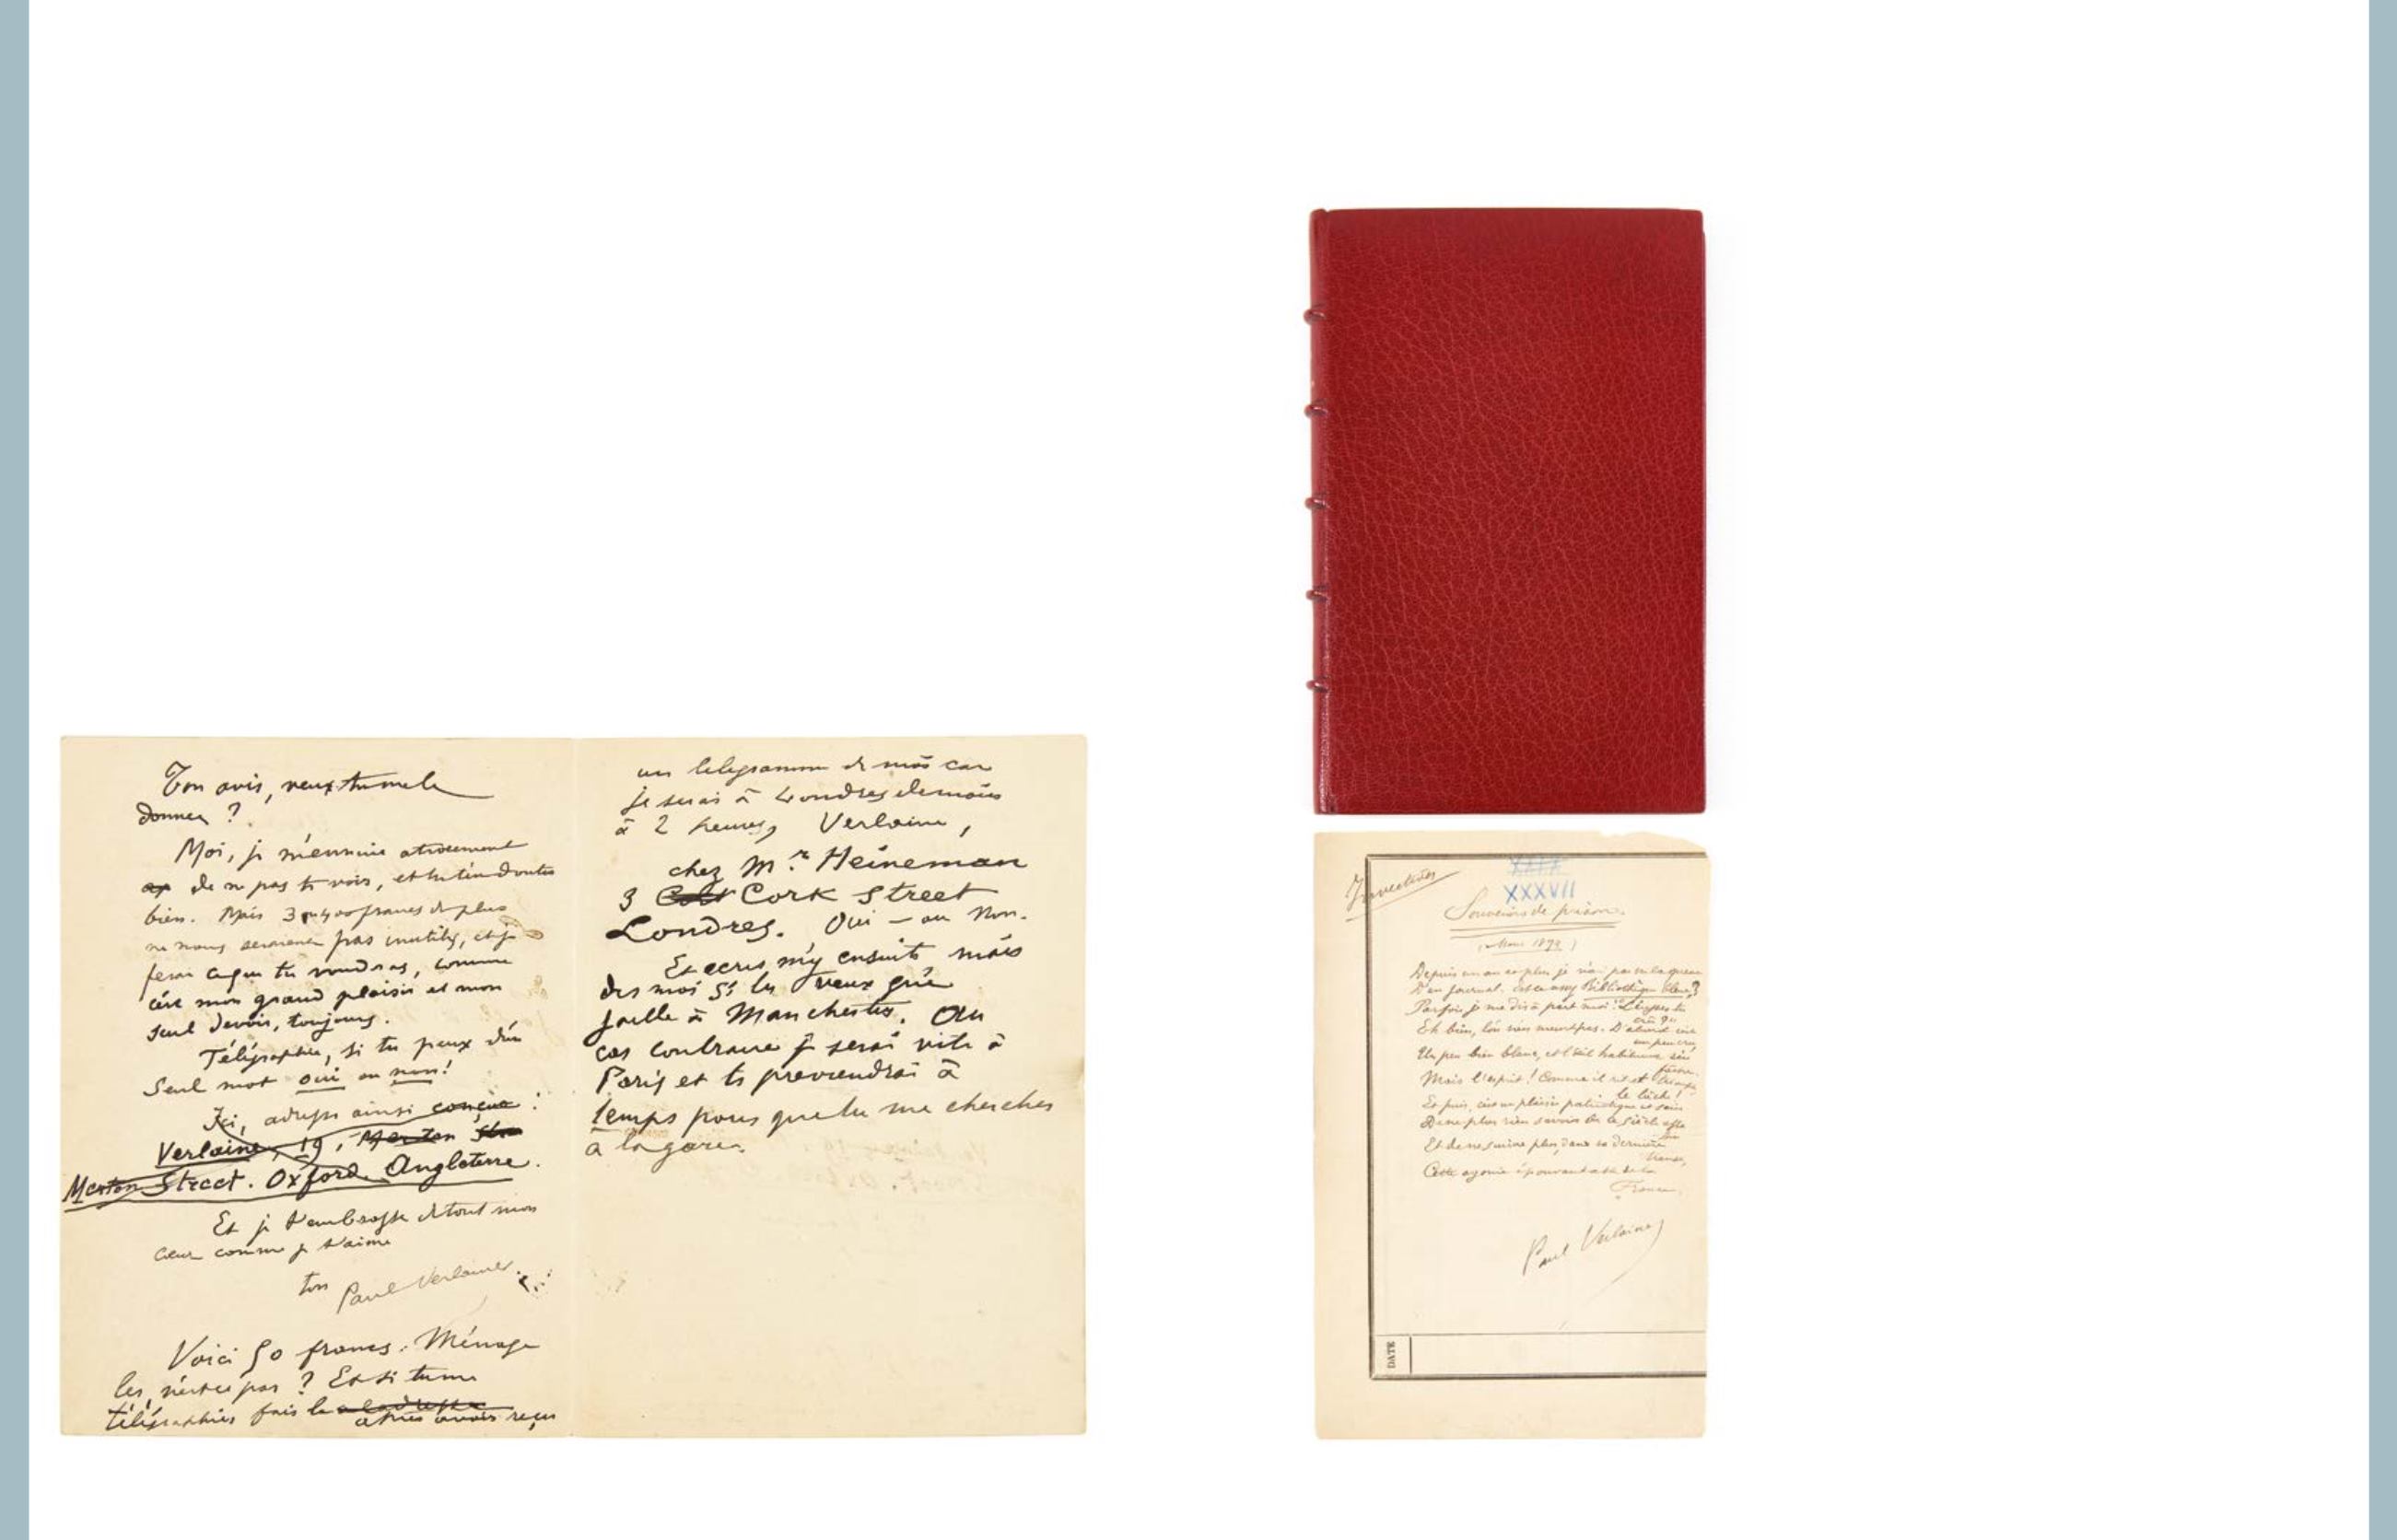 Ton avis, veux tu me le
donner ?
Moi, je m'ennuie atrocement
de ne pas te voir, et tu t'en doutes
bien. Mais 3 ou 400 francs de plus
ne nous seraient pas inutiles, et je
ferai ce que tu voudras, comme
c'est mon grand plaisir et mon
seul devoir, toujours.
Télégraphie, si tu peux d'un
seul mot oui ou non !
Ici, adresse ainsi conçue :
Verlaine, 19, Merton
Merton Street. Oxford. Angleterre.
Et je t'embrasse de tout mon
cœur comme je t'aime
ton Paul Verlaine.
Voici 50 francs. Ménage
les, n'est-ce pas ? Et si tu me
télégraphies fais le
après avoir reçu
un telegramme de moi car
je serai à Londres demain
à 2 heures, Verlaine,
chez Mr. Heineman
3 Cork Street
Londres. Oui – ou non.
Et ecris m'y ensuite, mais
dis moi si tu veux que
j'aille à Manchester. Au
cas contraire je serai vite à
Paris et te previendrai à
temps pour que tu me cherches
à la gare.
Invectives
XXXVII
Souvenirs de prison.
(Mars 1874)
Depuis un an et plus je n'ai pas vu la queue
D'un journal. Est-ce assez Bibliothèque bleue ?
Parfois je me dis à part moi : "L'eusses-tu
cru ?"
Eh bien, l'on n'en meurt pas. D'abord c'est
un peu cru,
Un peu bien blanc, et l'œil habitueux s'en
fâche.
Mais l'esprit ! Comme il rit et triomphe,
le lâche !
Et puis, c'est un plaisir patriotique et sain
De ne plus rien savoir de ce siècle
Et de ne suivre plus dans sa dernière
Cette agonie épouvantable de la
France.
Paul Verlaine
DATE